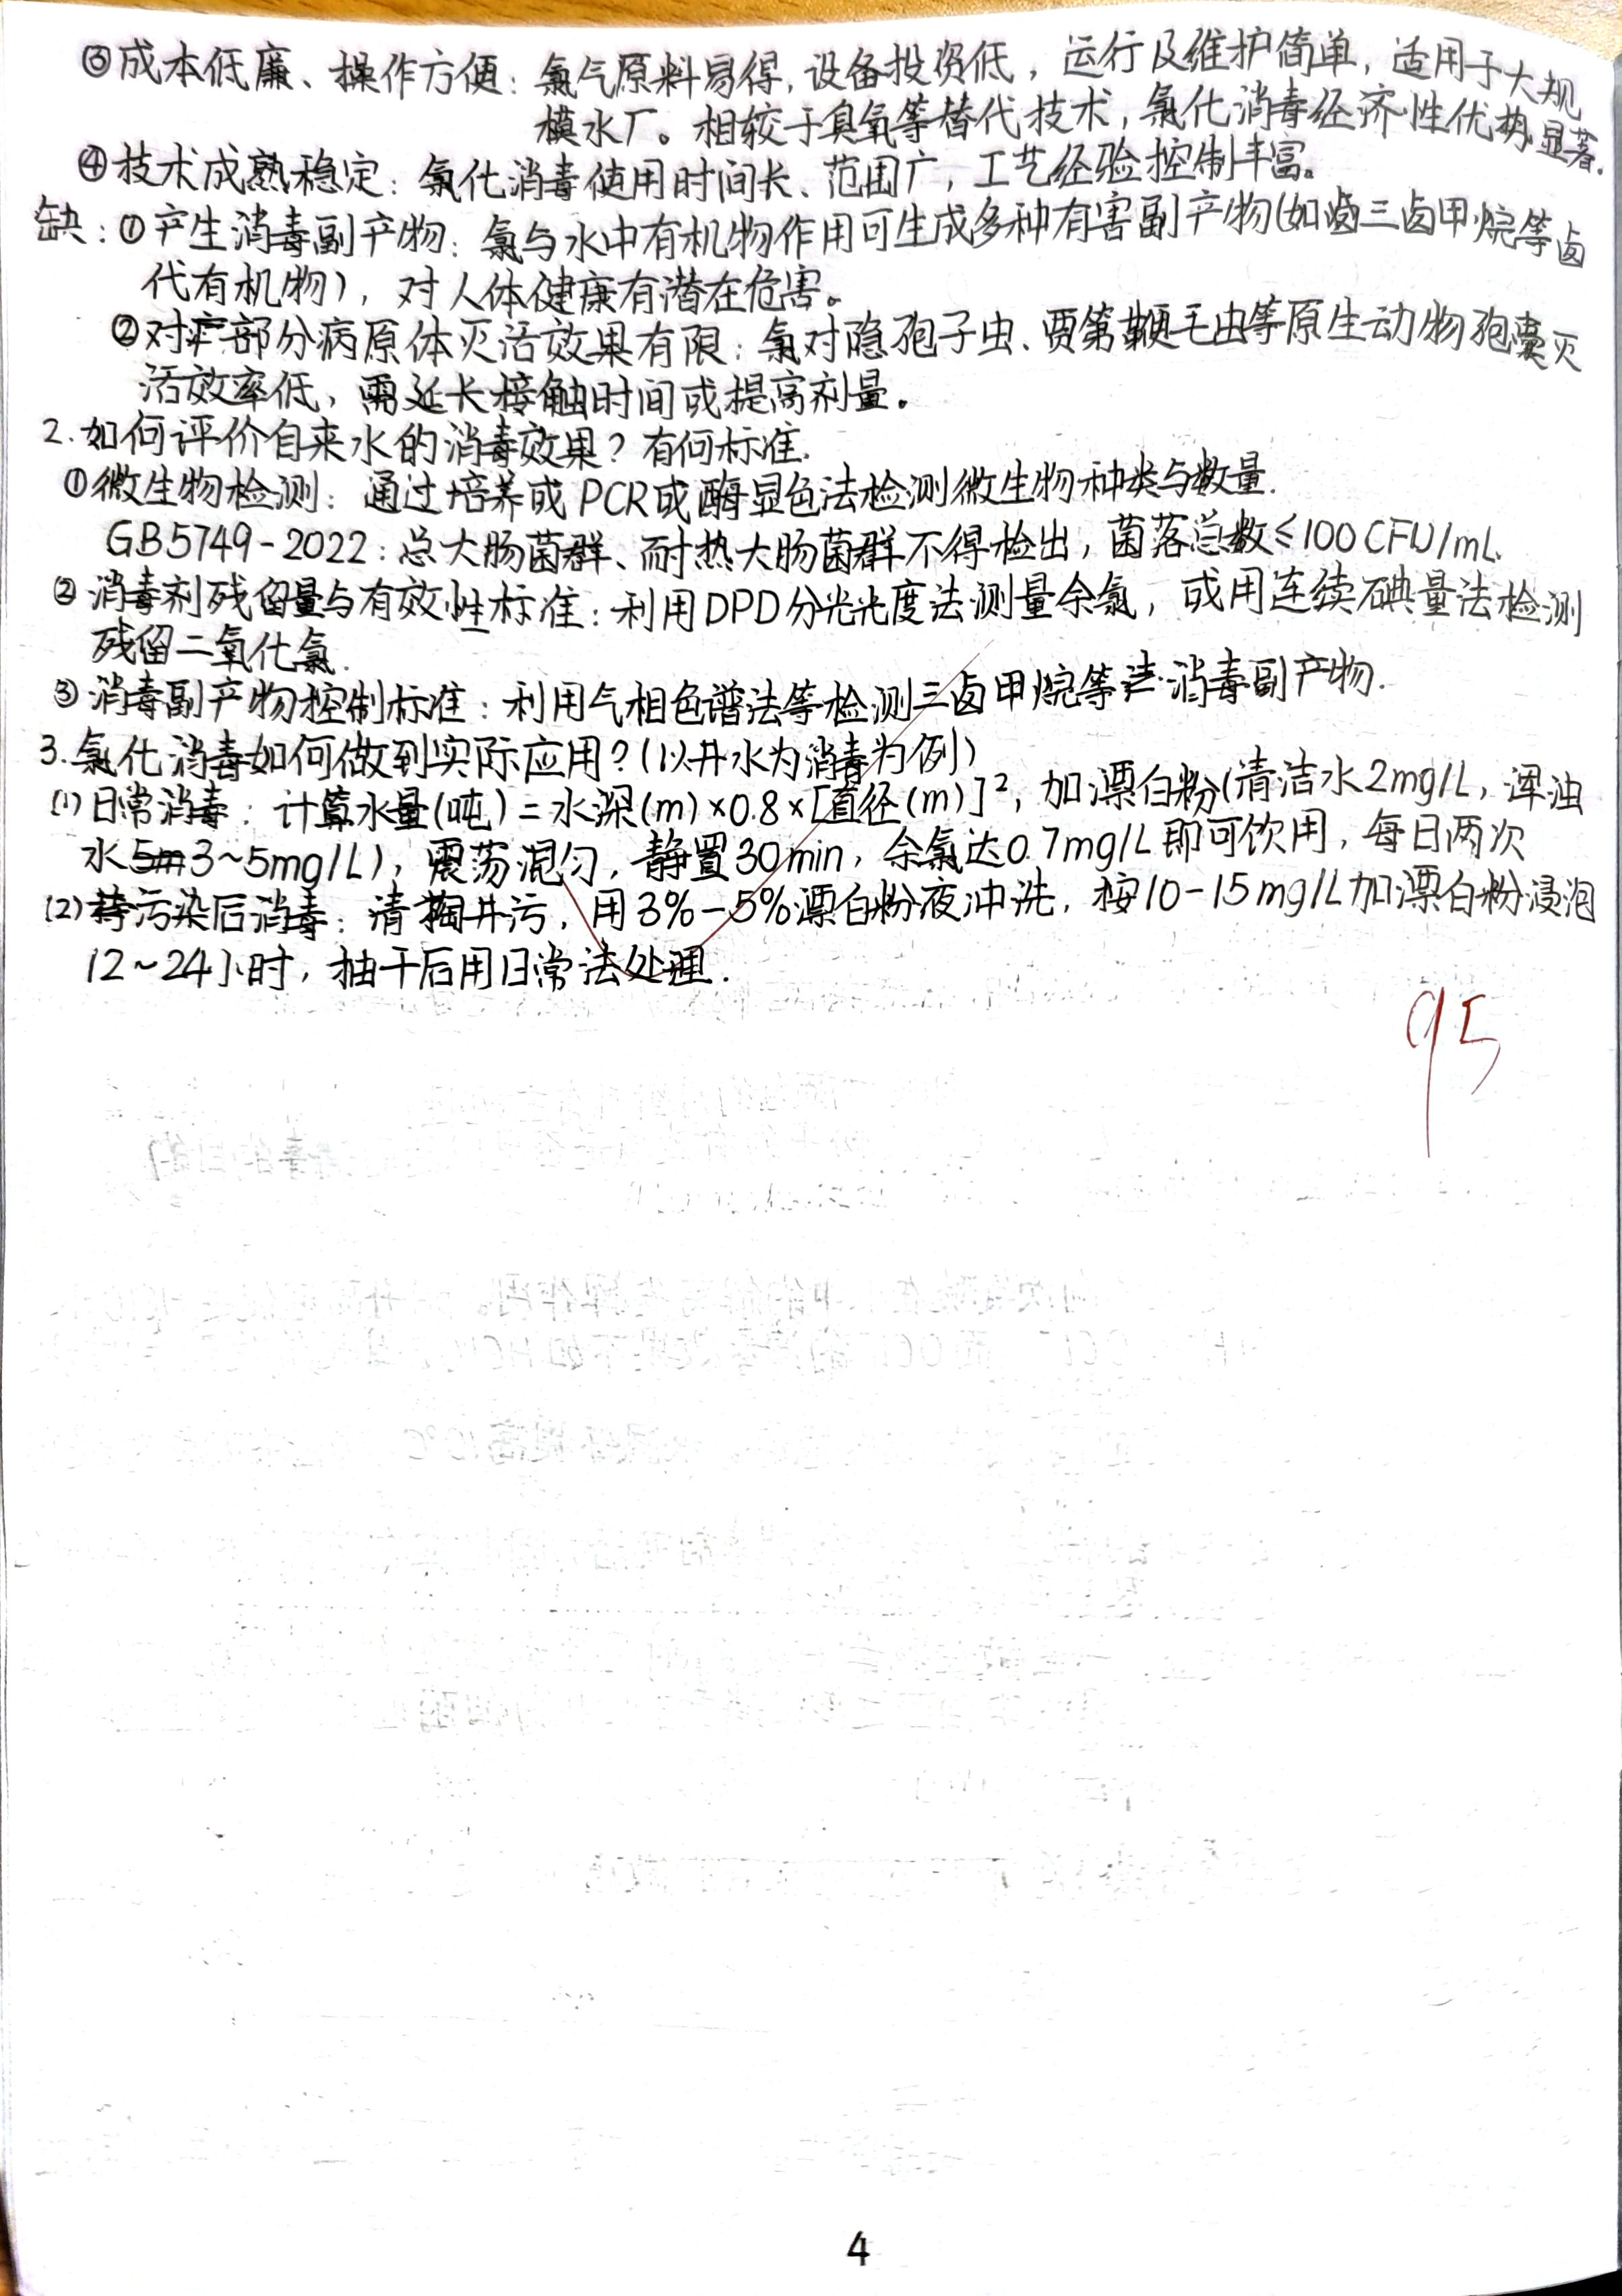 ③成本低廉、操作方便：氯气原料易得,设备投资低，运行及维护简单，适用于大规
模水厂。相较于臭氧等替代技术，氯化消毒经济性优势显著.
④技术成熟稳定：氯化消毒使用时间长、范围广，工艺经验控制丰富。
缺：①产生消毒副产物：氯与水中有机物作用可生成多种有害副产物(如卤三卤甲烷等卤
代有机物)，对人体健康有潜在危害。
②对部分病原体灭活效果有限：氯对隐孢子虫、贾第鞭毛虫等原生动物孢囊灭
活效率低，需延长接触时间或提高剂量。
2.如何评价自来水的消毒效果？有何标准.
①微生物检测：通过培养或PCR或酶显色法检测微生物种类与数量.
GB5749-2022：总大肠菌群、耐热大肠菌群不得检出，菌落总数≤100CFU/mL.
②消毒剂残留量与有效性标准：利用DPD分光光度法测量余氯，或用连续碘量法检测
残留二氧化氯.
③消毒副产物控制标准：利用气相色谱法等检测三卤甲烷等消毒副产物.
3.氯化消毒如何做到实际应用？(以井水为消毒为例)
(1)日常消毒：计算水量(吨)=水深(m)×0.8×[直径(m)]²，加漂白粉(清洁水2mg/L，浑浊
水3~5mg/L)，震荡混匀，静置30min，余氯达0.7mg/L即可饮用，每日两次
(2)污染后消毒：清掏井污，用3%-5%漂白粉液冲洗，按10-15mg/L加漂白粉浸泡
12~24小时，抽干后用日常法处理.
95
4